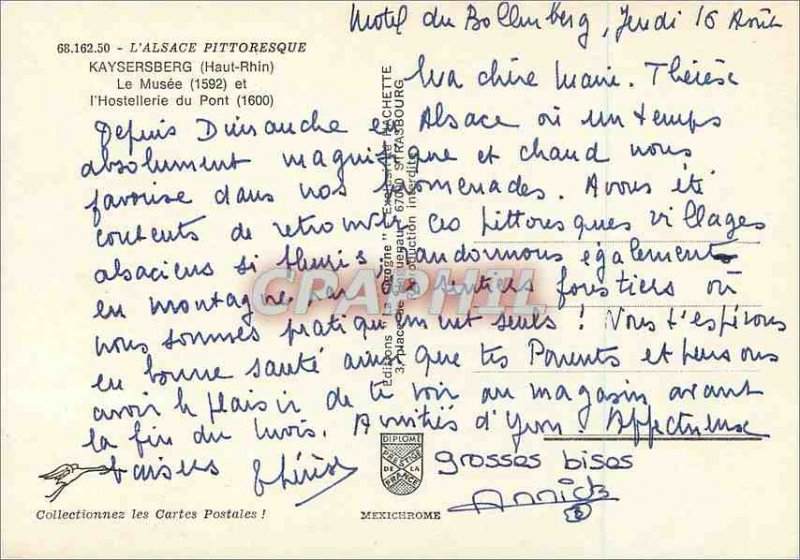 Motel du Bollenberg, Jeudi 16 Août
68.162.50 - L'ALSACE PITTORESQUE
KAYSERSBERG (Haut-Rhin)
Le Musée (1592) et
l'Hostellerie du Pont (1600)
Ma chère Marie. Thérèse
Depuis Dimanche en Alsace où un temps
absolument magnifique et chaud nous
favorise dans nos promenades. Avons été
contents de retrouver ces pittoresques villages
alsaciens si fleuris, randonnons également
en montagne par des sentiers forestiers où
nous sommes pratiquement seuls ! Nous t'espérons
en bonne santé ainsi que tes Parents et pensons
avoir le plaisir de te voir au magasin avant
la fin du mois. Amitiés d'Yvon. Affectueux
baisers Thérèse
grosses bises
Annick
Editions "La Cigogne" - Exclusivité HACHETTE
67000 STRASBOURG
production interdite
CRAPHIL
DIPLOME
PRESTIGE
DE LA
FRANCE
Collectionnez les Cartes Postales !
MEXICHROME